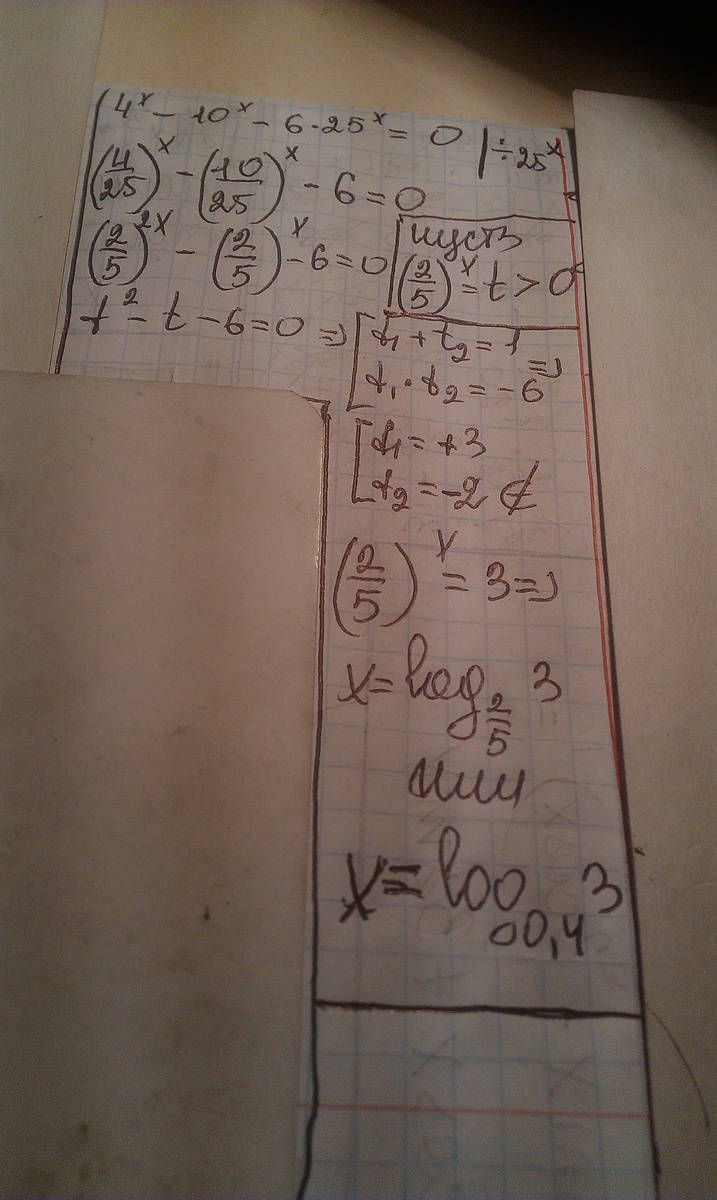 4ˣ - 10ˣ - 6·25ˣ = 0 | ÷25ˣ
(4/25)ˣ - (10/25)ˣ - 6 = 0
(2/5)²ˣ - (2/5)ˣ - 6 = 0
пусть
(2/5)ˣ = t > 0
t² - t - 6 = 0 ⇒ [t₁ + t₂ = 1
t₁·t₂ = -6 ⇒
[t₁ = +3
t₂ = -2 ∉
(2/5)ˣ = 3 ⇒
x = log_{2/5} 3
или
x = log_{0,4} 3